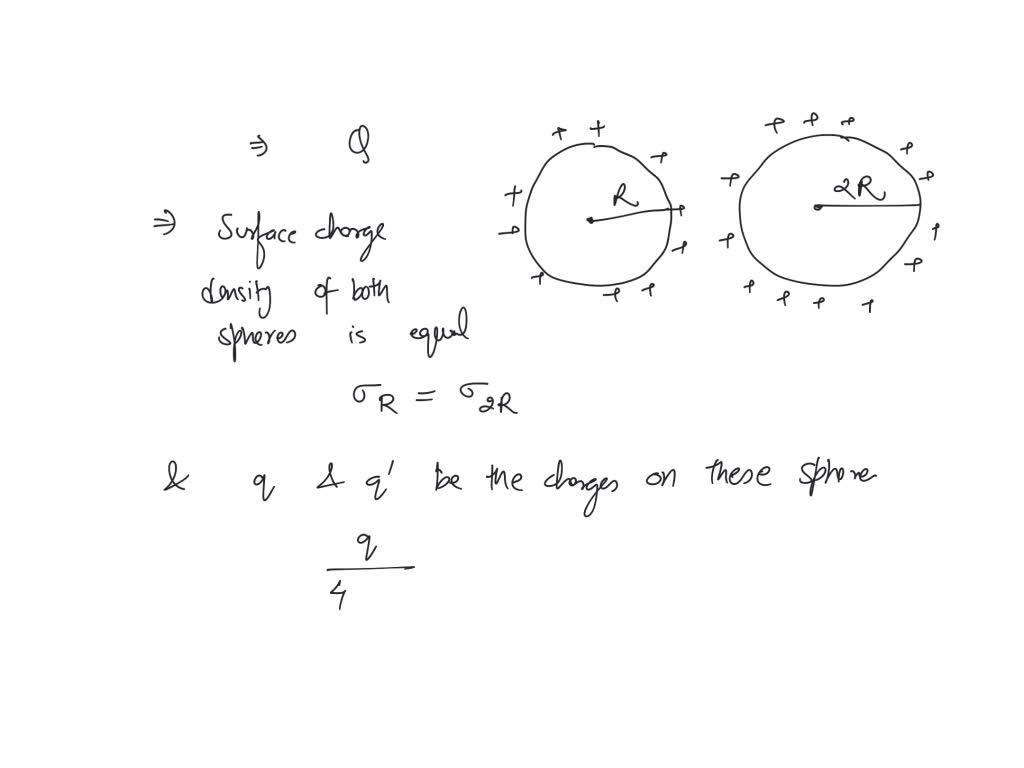 ⇒ Q
⇒ Surface charge
density of both
spheres is equal
σR = σ2R
& q & q' be the charges on these sphere
q
4
R
2R
+ + + + + + + + + +
+ + + + + + + + + + + + +